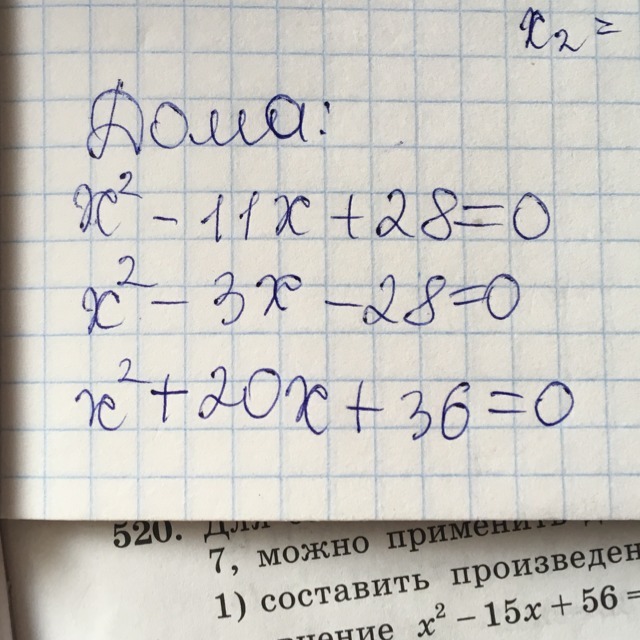 x₂ =
Дома:
x² - 11x + 28 = 0
x² - 3x - 28 = 0
x² + 20x + 36 = 0
520. Для
7, можно применить
1) составить произведен
внение x² – 15x + 56 =